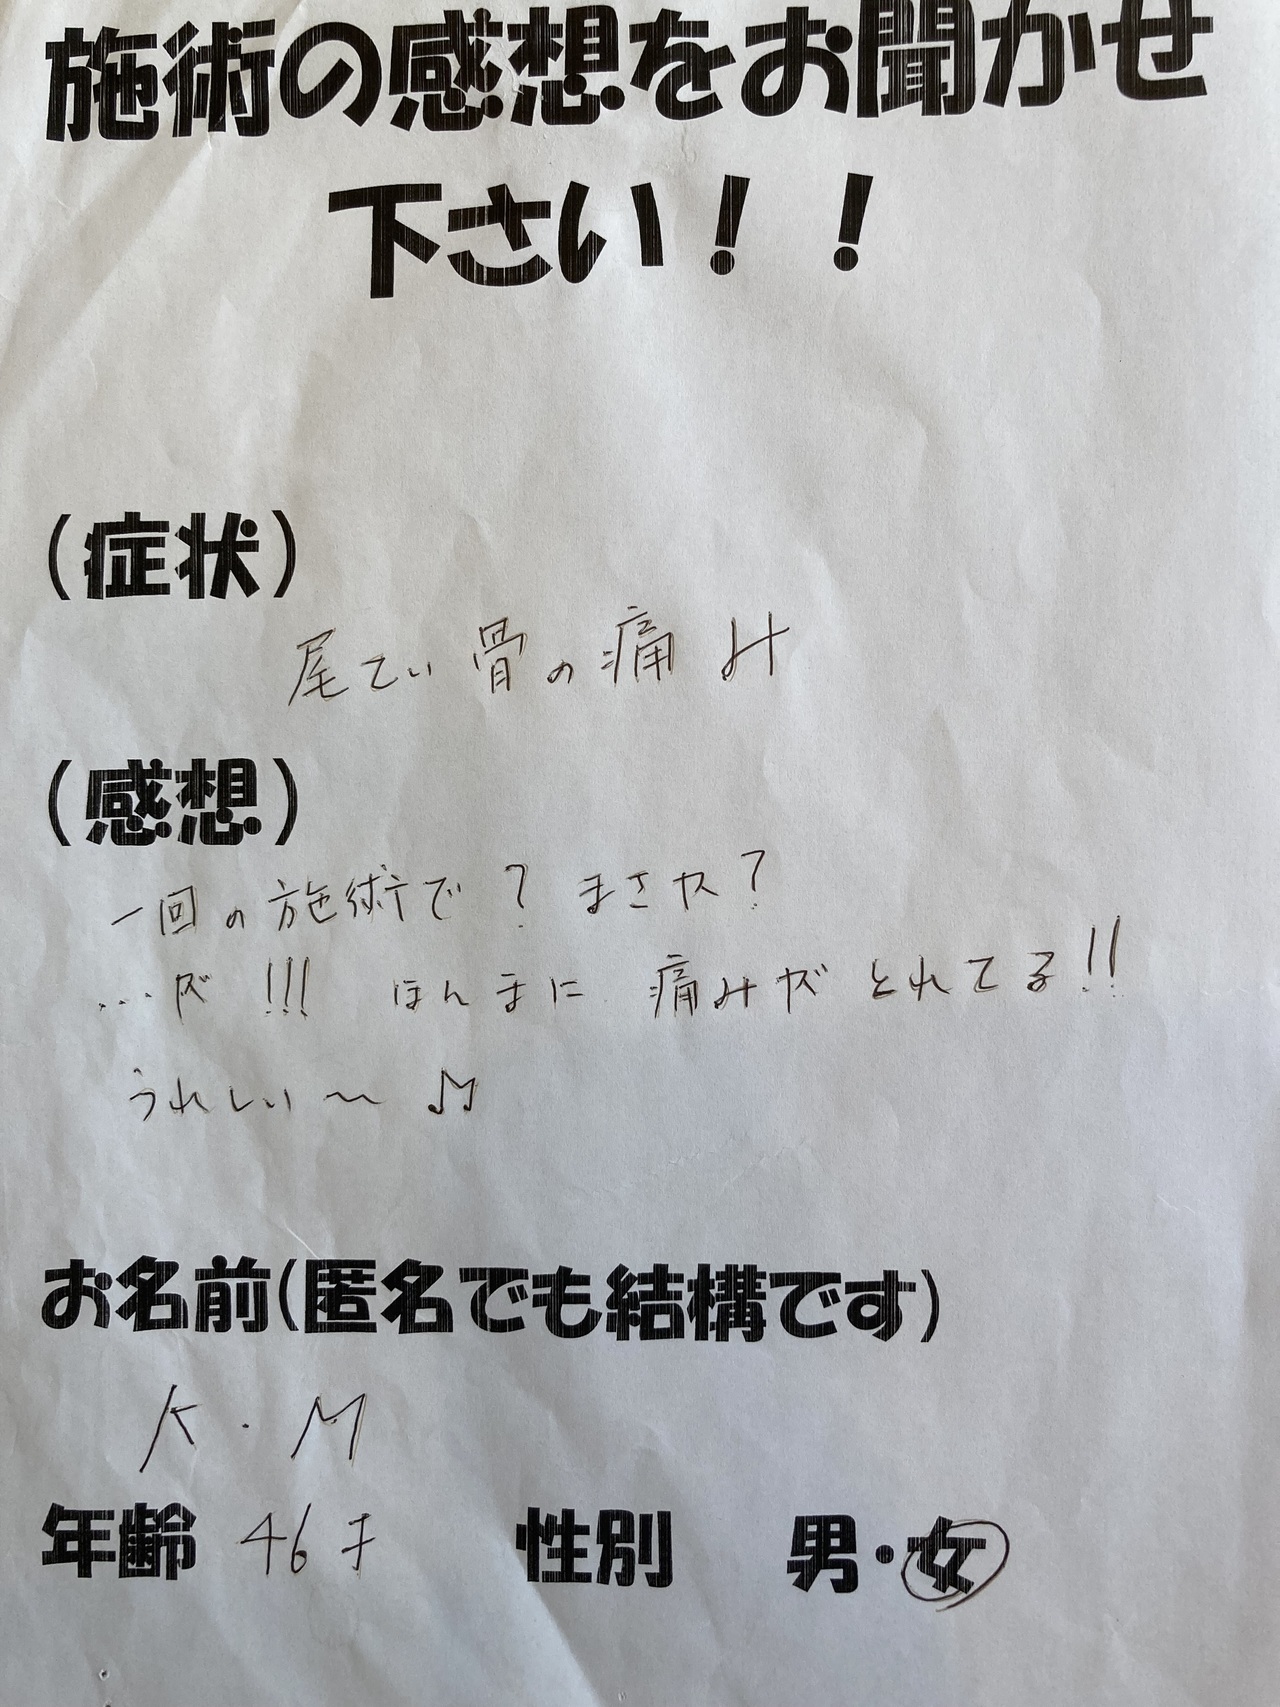 施術の感想をお聞かせ
下さい！！
(症状)
尾てい骨の痛み
(感想)
一回の施術で？まさか？
…が!!! ほんまに 痛みが とれてる!!
うれしい〜♫
お名前(匿名でも結構です)
K・M
年齢 46才 性別 男・女